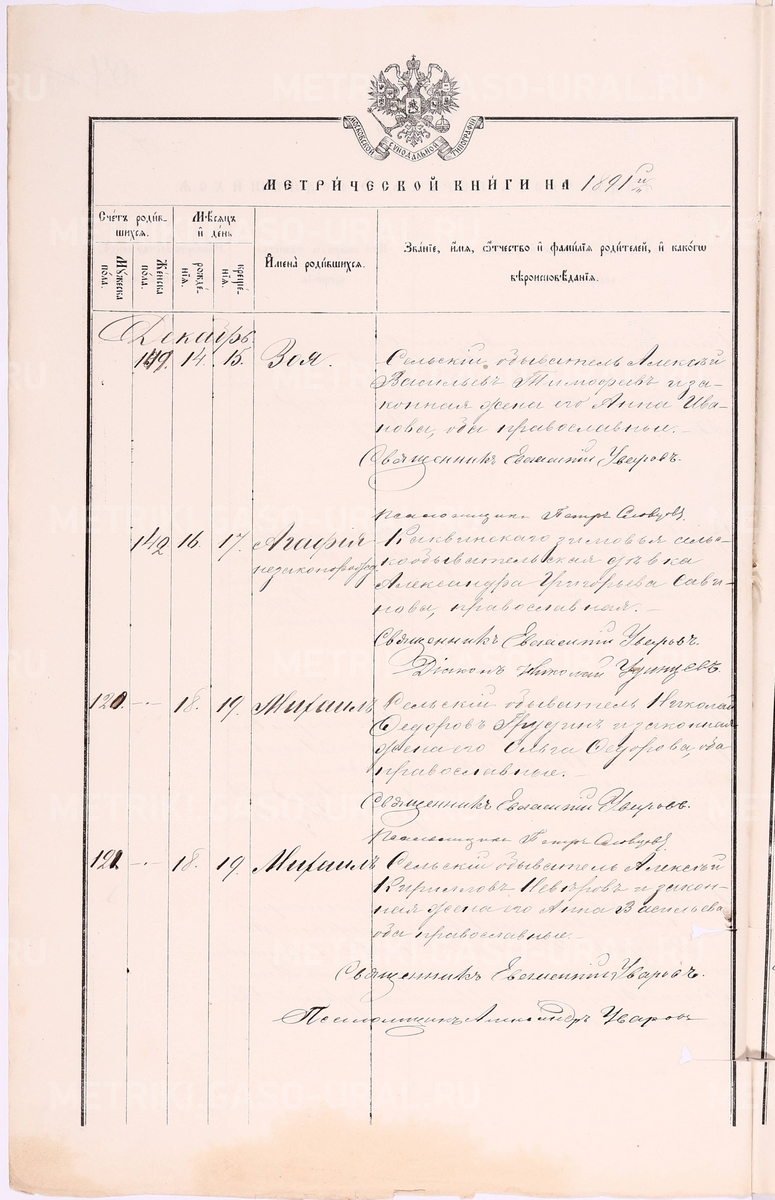 МОСКОВСКОЙ СѴНОДАЛЬНОЙ ТИПОГРАФІИ
МЕТРИ́ЧЕСКОЙ КНИ́ГИ НА 1891 г.
Счетъ роди́вшихся.
Мꙋжеска пола.
Же́нска пола.
Мѣсяцъ и́ день
рожде́нїя.
креще́нїя.
И҆мена̀ роди́вшихся.
Зва́нїе, и҆́мя, ѻ҆́тчество и҆ фами́лїѧ роди́телей, и҆ како́гѡ вѣроисповѣ́данїѧ.
Декабрь.
14. 15. Зоя.
Сельскій обыватель Алексѣй
Васильевъ Тимофеевъ и за-
конная жена его Анна Ива-
нова, оба православные.
Священникъ Евлампій Уваровъ.
Псаломщикъ Петръ Словцовъ
142 16. 17. Агафія
незаконорожд.
Каквинскаго зимовья сельс-
кообывательская дѣвка
Александра Григорьева Сави-
нова, православная.
Священникъ Евлампій Уваровъ.
Діаконъ Николай Удинцевъ.
120. -"- 18. 19. Михаилъ
Сельскій обыватель Николай
Ѳедоровъ Грудинъ и законная
жена его Ольга Ѳедорова, оба
православные.
Священникъ Евлампій Уваровъ.
Псаломщикъ Петръ Словцовъ
121. -"- 18. 19. Михаилъ
Сельскій обыватель Алексѣй
Кирилловъ Невѣровъ и закон-
ная жена его Анна Васильева
оба православные.
Священникъ Евлампій Уваровъ.
Псаломщикъ Александръ Уваровъ
METRIKI.GASO-URAL.RU